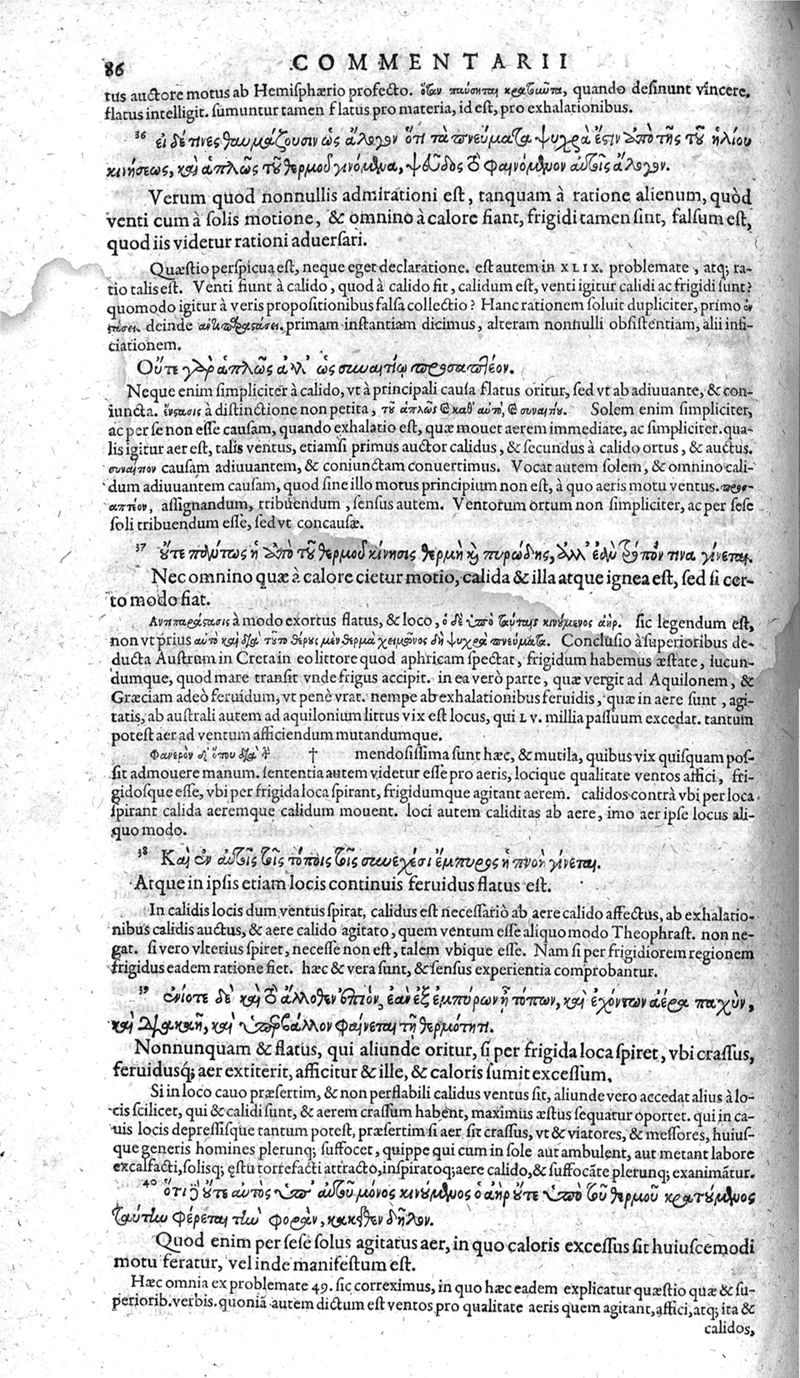 86 COMMENTARII
tus auctore motus ab Hemisphærio profecto. ὅταν παύσηται κρατοῦντα, quando desinunt vincere,
flatus intelligit. sumuntur tamen flatus pro materia, id est, pro exhalationibus.
36 εἰ δέ τινες θαυμάζουσιν ὡς ἄλογον ὅτι τὰ πνεύματα ψυχρά ἐστιν ἀπὸ τῆς τοῦ ἡλίου
κινήσεως, καὶ ἁπλῶς τοῦ θερμοῦ γινόμενα, ψεῦδος τὸ φαινόμενον αὐτοῖς ἄλογον.
Verum quod nonnullis admirationi est, tanquam à ratione alienum, quòd
venti cum à solis motione, & omnino à calore fiant, frigidi tamen sint, falsum est,
quod iis videtur rationi aduersari.
Quæstio perspicua est, neque eget declaratione. est autem in XLIX. problemate, atq; ra-
tio talis est. Venti fiunt à calido, quod à calido fit, calidum est, venti igitur calidi ac frigidi sunt?
quomodo igitur à veris propositionibus falsa collectio? Hanc rationem soluit dupliciter, primo ἐν
στάσει. deinde primam instantiam dicimus, alteram nonnulli obsistentiam, alii infi-
ciationem.
Οὔτε γὰρ ἁπλῶς ἀλλ' ὡς συναιτίῳ προσαπτέον.
Neque enim simpliciter à calido, vt à principali causa flatus oritur, sed vt ab adiuuante, & con-
iuncta. ἔνστασις à distinctione non petita, τοῦ ἁπλῶς καὶ καθ' αὑτὸ, καὶ συναιτίου. Solem enim simpliciter,
ac per se non esse causam, quando exhalatio est, quæ mouet aerem immediate, ac simpliciter. qua-
lis igitur aer est, talis ventus, etiamsi primus auctor calidus, & secundus à calido ortus, & auctus.
συναίτιον causam adiuuantem, & coniunctam conuertimus. Vocat autem solem, & omnino cali-
dum adiuuantem causam, quod sine illo motus principium non est, à quo aeris motu ventus. προσ-
απτέον, assignandum, tribuendum, sensus autem. Ventorum ortum non simpliciter, ac per sese
soli tribuendum esse, sed vt concausæ.
37 οὔτε πάντως ἡ ἀπὸ τοῦ θερμοῦ κίνησις θερμὴ καὶ πυρώδης, ἀλλ' ἐὰν τρόπον τινα γίνεται.
Nec omnino quæ à calore cietur motio, calida & illa atque ignea est, sed si cer-
to modo fiat.
Αντιπαράστασις à modo exortus flatus, & loco, ὁ δὲ ὑπὸ ταύτης κινούμενος ἀήρ. sic legendum est,
non vt prius αὐτὸ καὶ διὰ τοῦτο θέρους μὲν θερμὰ χειμῶνος δὴ ψυχρὰ πνεύματα. Conclusio à superioribus de-
ducta Austrum in Creta in eo littore quod aphricam spectat, frigidum habemus æstate, iucun-
dumque, quod mare transit vnde frigus accipit. in ea verò parte, quæ vergit ad Aquilonem, &
Græciam adeò feruidum, vt penè vrat. nempe ab exhalationibus feruidis, quæ in aere sunt, agi-
tatis, ab australi autem ad aquilonium littus vix est locus, qui LV. millia passuum excedat. tantum
potest aer ad ventum afficiendum mutandumque.
Φανερὸν † mendosissima sunt hæc, & mutila, quibus vix quisquam pos-
sit admouere manum. sententia autem videtur esse pro aeris, locique qualitate ventos affici, fri-
gidosque esse, vbi per frigida loca spirant, frigidumque agitant aerem. calidos contrà vbi per loca
spirant calida aeremque calidum mouent. loci autem caliditas ab aere, imo aer ipse locus ali-
quo modo.
38 Καὶ ἐν αὐτοῖς τοῖς τόποις τοῖς συνεχέσι ἔμπυρος ἡ πνοὴ γίνεται.
Atque in ipsis etiam locis continuis feruidus flatus est.
In calidis locis dum ventus spirat, calidus est necessariò ab aere calido affectus, ab exhalatio-
nibus calidis auctus, & aere calido agitato, quem ventum esse aliquo modo Theophrast. non ne-
gat. si vero vlterius spiret, necesse non est, talem vbique esse. Nam si per frigidiorem regionem
frigidus eadem ratione fiet. hæc & vera sunt, & sensus experientia comprobantur.
39 ἐνίοτε δὲ καὶ τὸ ἄλλοθεν ἐπιὸν, ἐὰν ἐξ ἐμπύρων ᾖ τόπων, καὶ ἐχόντων ἀέρα παχὺν,
καὶ διακαῆ, καὶ ὑπερβάλλον φαίνεται τῇ θερμότητι.
Nonnunquam & flatus, qui aliunde oritur, si per frigida loca spiret, vbi crassus,
feruidusq; aer extiterit, afficitur & ille, & caloris sumit excessum.
Si in loco cauo præsertim, & non perflabili calidus ventus sit, aliunde vero accedat alius à lo-
cis scilicet, qui & calidi sunt, & aerem crassum habent, maximus æstus sequatur oportet. qui in ca-
uis locis depressisque tantum potest, præsertim si aer sit crassus, vt & viatores, & messores, huius-
que generis homines plerunq; suffocet, quippe qui cum in sole aut ambulent, aut metant labore
excalfacti, solisq; ęstu torrefacti attracto, inspiratoq; aere calido, & suffocāte plerunq; exanimātur.
40 ὅτι δὲ οὔτε αὐτὸς ὑπ' αὑτοῦ μόνος κινούμενος ὁ ἀὴρ οὔτε ὑπὸ τοῦ θερμοῦ κρατούμενος
ταύτην φέρεται τὴν φορὰν, κακεῖθεν δῆλον.
Quod enim per sese solus agitatus aer, in quo caloris excessus sit huiuscemodi
motu feratur, vel inde manifestum est.
Hæc omnia ex problemate 49. sic correximus, in quo hæc eadem explicatur quæstio quæ & su-
periorib. verbis. quoniā autem dictum est ventos pro qualitate aeris quem agitant, affici, atq; ita &
calidos,